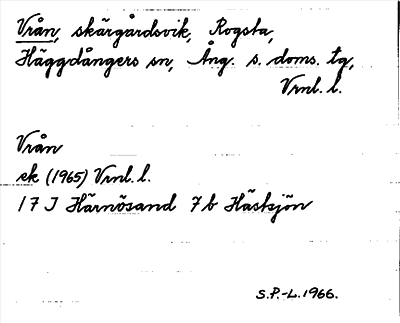 Vrån, skärgårdsvik, Rogsta,
Häggdångers sn, Ång. s. doms. tg,
Vrnl. l.
Vrån
ek (1965) Vrnl. l.
17 J Härnösand 7b Hästsjön
S.P.-L. 1966.